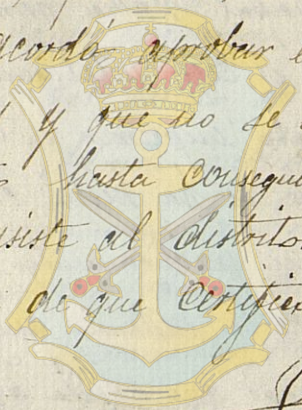 acordó aprobar e
y que no se
hasta consegui
siste al distrito
de que certific